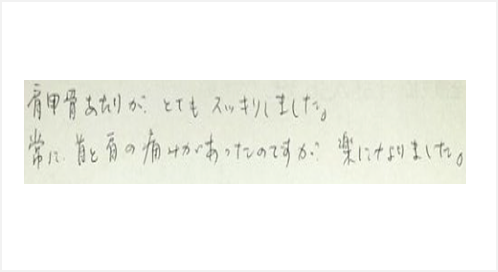 肩甲骨あたりが、とても スッキリしました。
常に、首と肩の痛みがあったのですが、楽になりました。